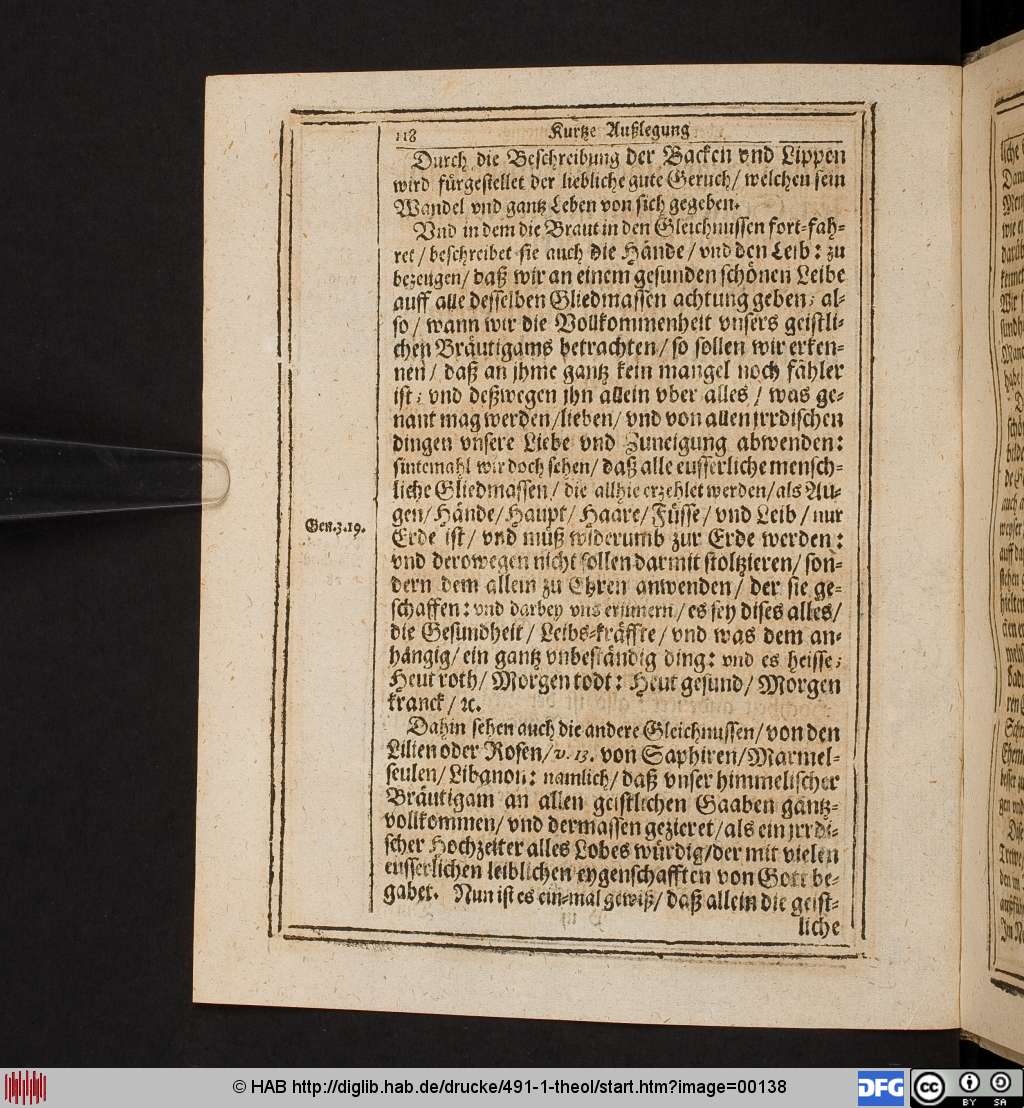 118 Kurtze Außlegung
Durch die Beschreibung der Backen vnd Lippen
wird fürgestellet der liebliche gute Geruch/ welchen sein
Wandel vnd gantz Leben von sich gegeben.
Vnd in dem die Braut in den Gleichnussen fort-fah-
ret/ beschreibet sie auch die Hände/ vnd den Leib: zu
bezeugen/ daß wir an einem gesunden schönen Leibe
auff alle desselben Gliedmassen achtung geben; al-
so/ wann wir die Vollkommenheit vnsers geistli-
chen Bräutigams betrachten/ so sollen wir erken-
nen/ daß an jhme gantz kein mangel noch fähler
ist; vnd deßwegen jhn allein vber alles/ was ge-
nant mag werden/ lieben/ vnd von allen jrrdischen
dingen vnsere Liebe vnd Zuneigung abwenden:
sintemahl wir doch sehen/ daß alle eusserliche mensch-
liche Gliedmassen/ die allhie erzehlet werden/ als Au-
gen/ Hände/ Haupt/ Haare/ Füsse/ vnd Leib/ nur
Gen.3.19.
Erde ist/ vnd muß widerumb zur Erde werden:
vnd derowegen nicht sollen darmit stoltzieren/ son-
dern dem allein zu Ehren anwenden/ der sie ge-
schaffen: vnd darbey vns erinnern/ es sey dises alles/
die Gesundheit/ Leibs-kräffte/ vnd was dem an-
hängig/ ein gantz vnbeständig ding: vnd es heisse;
Heut roth/ Morgen todt: Heut gesund/ Morgen
kranck/ ꝛc.
Dahin sehen auch die andere Gleichnussen/ von den
Lilien oder Rosen/ v. 13. von Saphiren/ Marmel-
seulen/ Libanon: namlich/ daß vnser himmelischer
Bräutigam an allen geistlichen Gaaben gäntz-
vollkommen/ vnd dermassen gezieret/ als ein jrrdi-
scher Hochzeiter alles Lobes würdig/ der mit vielen
eusserlichen leiblichen eygenschafften von Gott be-
gabet. Nun ist es ein-mal gewiß/ daß allein die geist-
liche
© HAB http://diglib.hab.de/drucke/491-1-theol/start.htm?image=00138
DFG
cc
BY SA